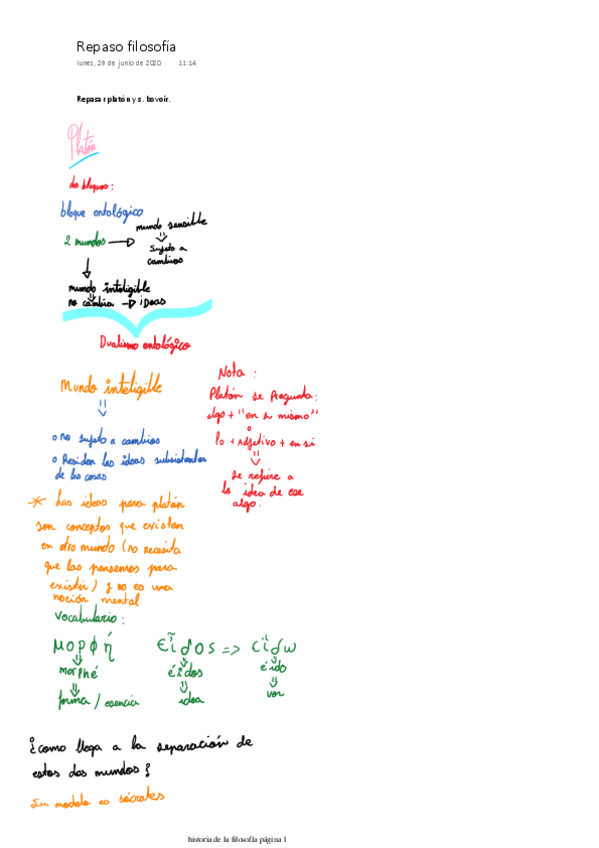 Repaso filosofía
lunes, 29 de junio de 2020 11:14
Repasar platón y s. bovoir.
Platón
dos bloques:
bloque ontológico
2 mundos → mundo sensible
sujeto a
cambios
mundo inteligible
no cambia → ideas
Dualismo ontológico
Mundo inteligible
o no sujeto a cambios
o Residen las ideas subsistentes
de las cosas
Nota :
Platón se pregunta:
algo + "en si mismo"
o
lo + adjetivo + en si
se refiere a
la idea de ese
algo.
* Las ideas para platón
son conceptos que existen
en otro mundo (no necesita
que las pensemos para
existir) y no es una
noción mental
Vocabulario :
μορφή εἶδos => εἴδω
morphé éidos éido
forma / esencia idea ver
¿como llega a la separación de
estos dos mundos?
Su modelo es sócrates
historia de la filosofía página 1